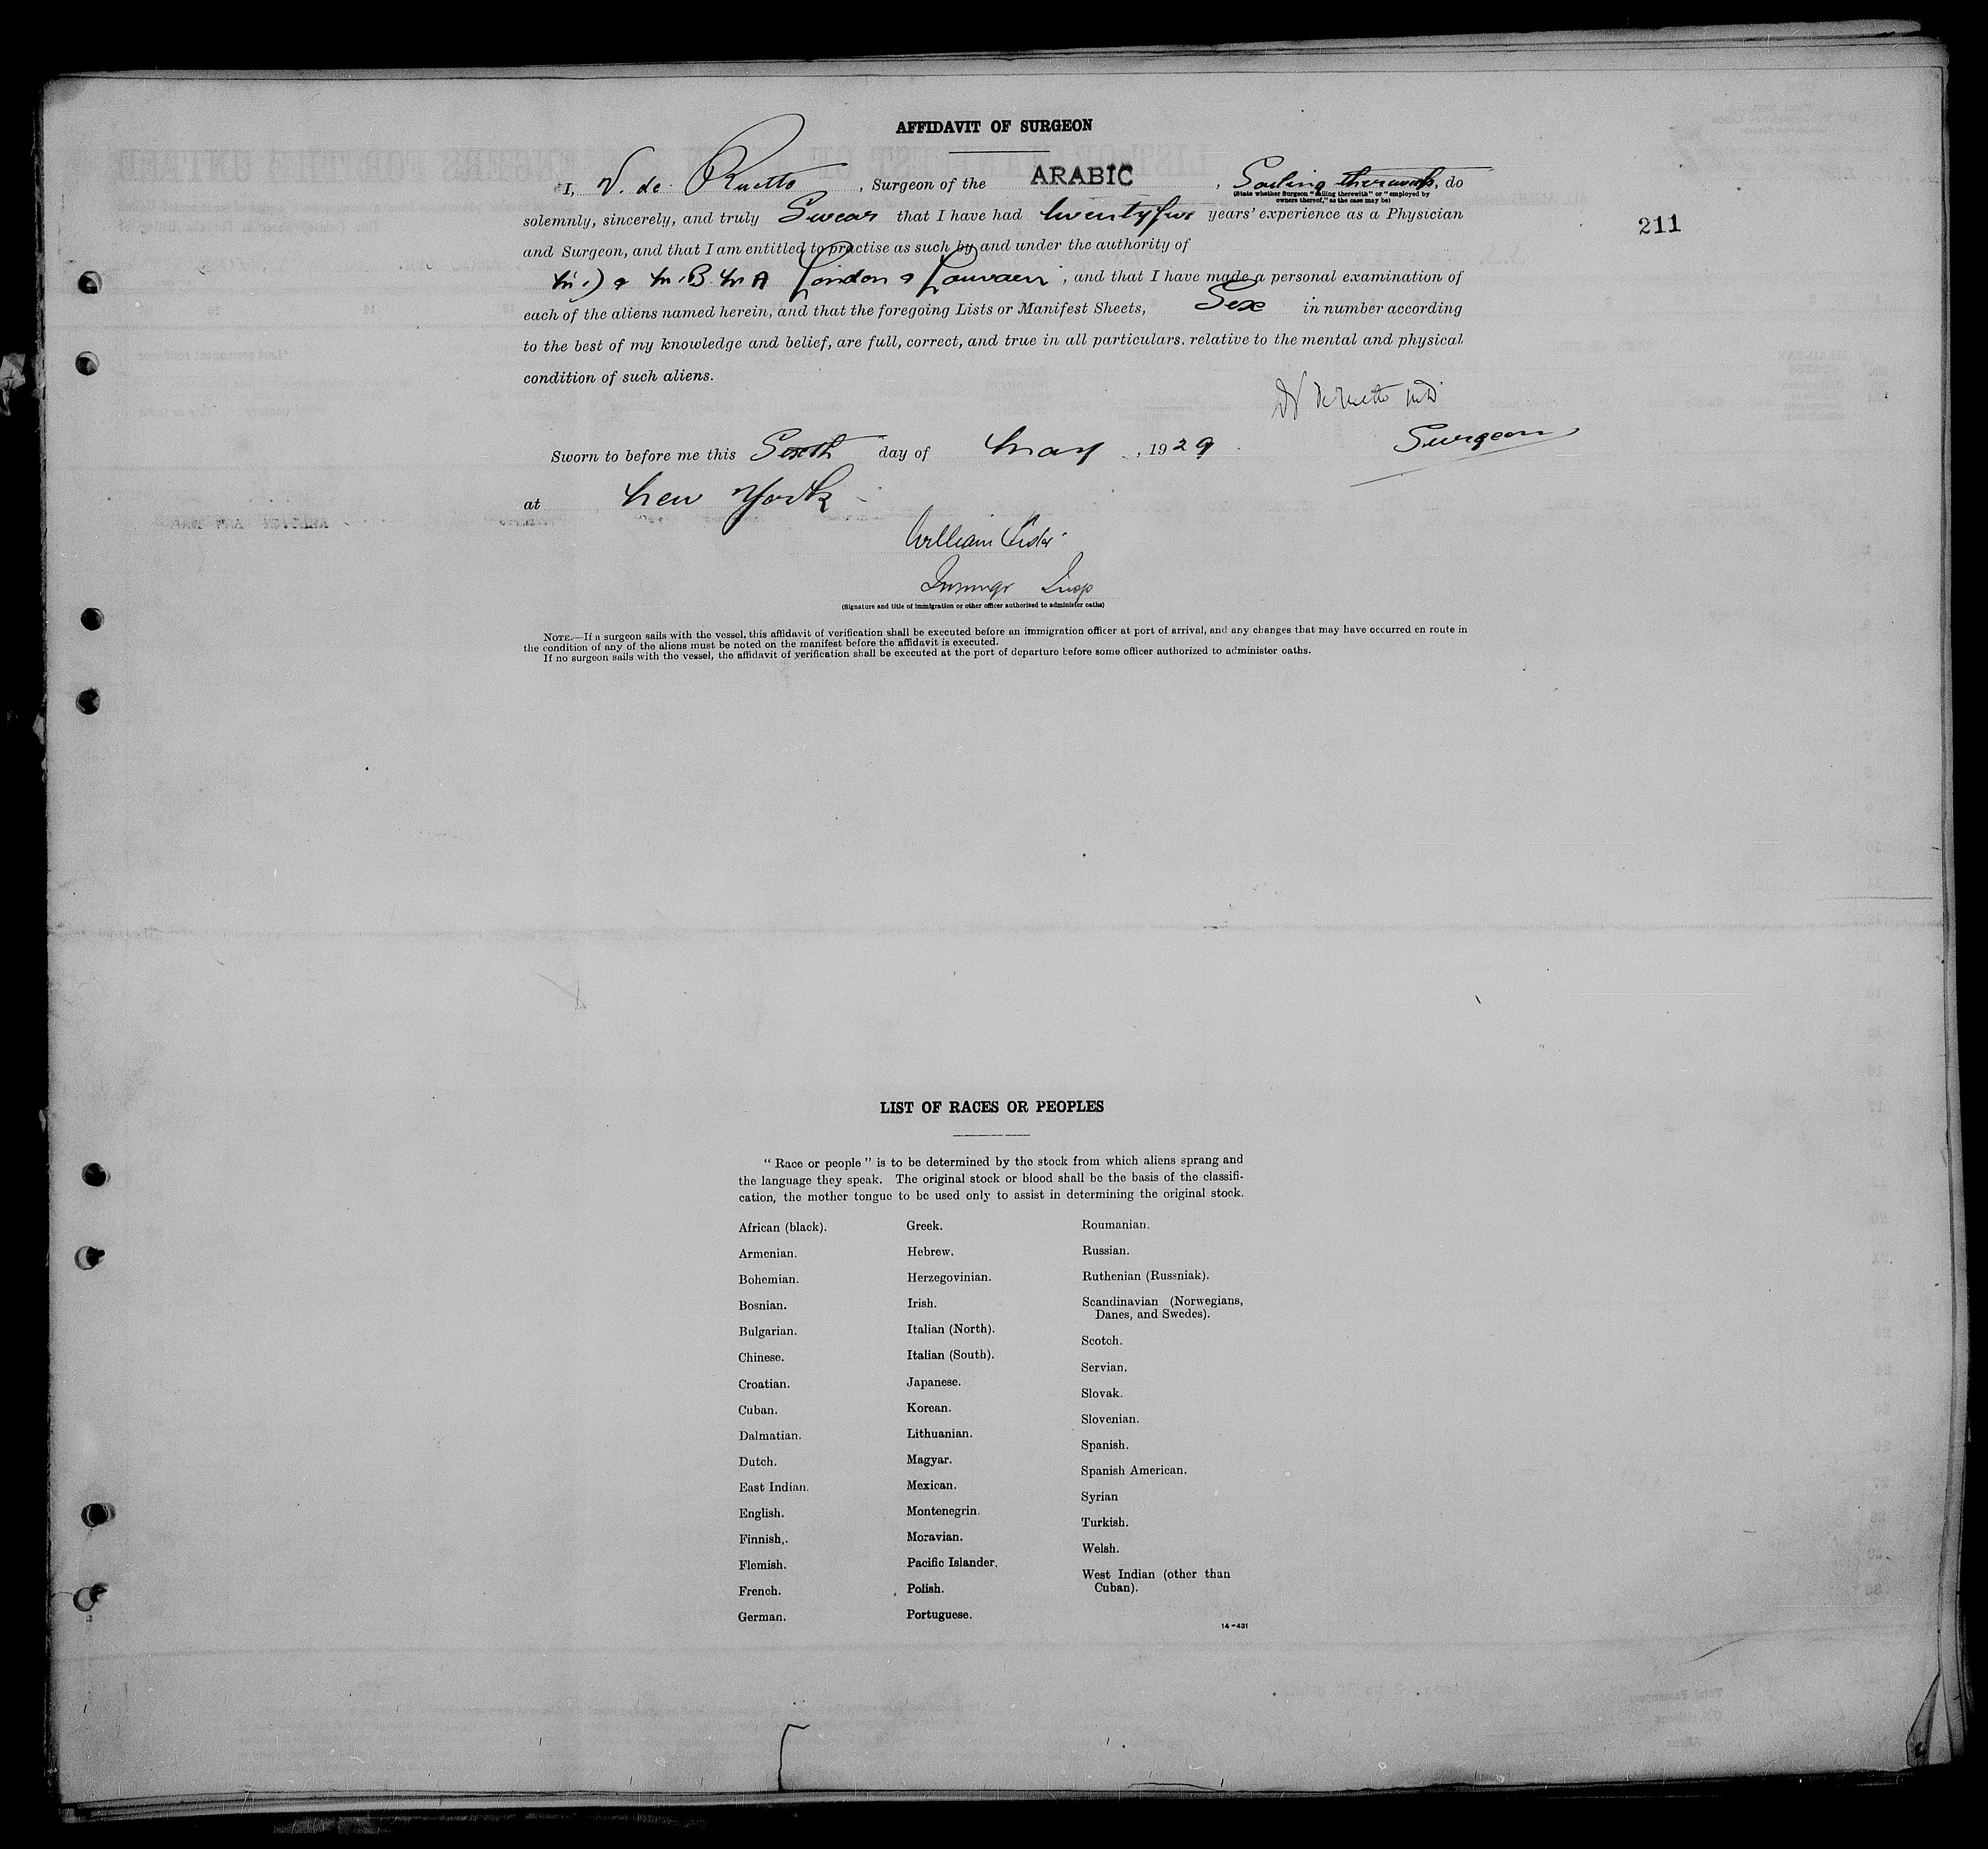 AFFIDAVIT OF SURGEON
I, V. de , Surgeon of the ARABIC , Sailing therewith, do
(State whether Surgeon "sailing therewith" or "employed by
owners thereof," as the case may be)
211
solemnly, sincerely, and truly Swear that I have had twenty five years' experience as a Physician
and Surgeon, and that I am entitled to practise as such by and under the authority of
London & Louvain , and that I have made a personal examination of
each of the aliens named herein, and that the foregoing Lists or Manifest Sheets, Six in number according
to the best of my knowledge and belief, are full, correct, and true in all particulars. relative to the mental and physical
condition of such aliens.
Surgeon
Sworn to before me this Sixth day of May , 1929
at New York
William
Immigr Insp
(Signature and title of immigration or other officer authorized to administer oaths)
NOTE.—If a surgeon sails with the vessel, this affidavit of verification shall be executed before an immigration officer at port of arrival, and any changes that may have occurred en route in
the condition of any of the aliens must be noted on the manifest before the affidavit is executed.
If no surgeon sails with the vessel, the affidavit of verification shall be executed at the port of departure before some officer authorized to administer oaths.
LIST OF RACES OR PEOPLES
"Race or people" is to be determined by the stock from which aliens sprang and
the language they speak. The original stock or blood shall be the basis of the classifi-
cation, the mother tongue to be used only to assist in determining the original stock.
African (black).
Armenian.
Bohemian.
Bosnian.
Bulgarian.
Chinese.
Croatian.
Cuban.
Dalmatian.
Dutch.
East Indian.
English.
Finnish,.
Flemish.
French.
German.
Greek.
Hebrew.
Herzegovinian.
Irish.
Italian (North).
Italian (South).
Japanese.
Korean.
Lithuanian.
Magyar.
Mexican.
Montenegrin.
Moravian.
Pacific Islander.
Polish.
Portuguese.
Roumanian.
Russian.
Ruthenian (Russniak).
Scandinavian (Norwegians,
Danes, and Swedes).
Scotch.
Servian.
Slovak.
Slovenian.
Spanish.
Spanish American.
Syrian
Turkish.
Welsh.
West Indian (other than
Cuban).
14-431